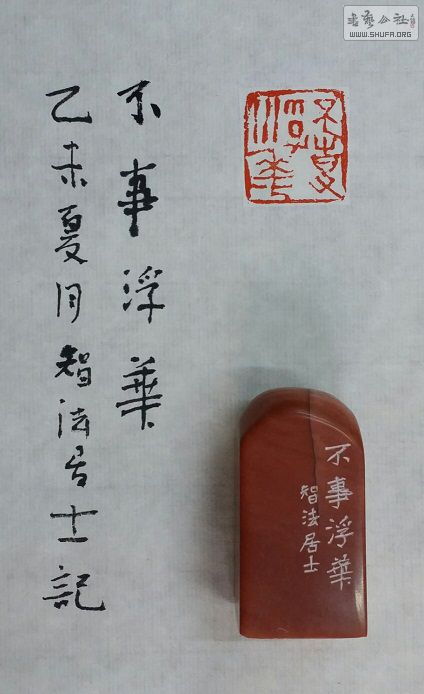 不事浮華
乙未夏月智法居士記
不事浮華
不事浮華
智法居士
書藝公社
WWW.SHUFA.ORG